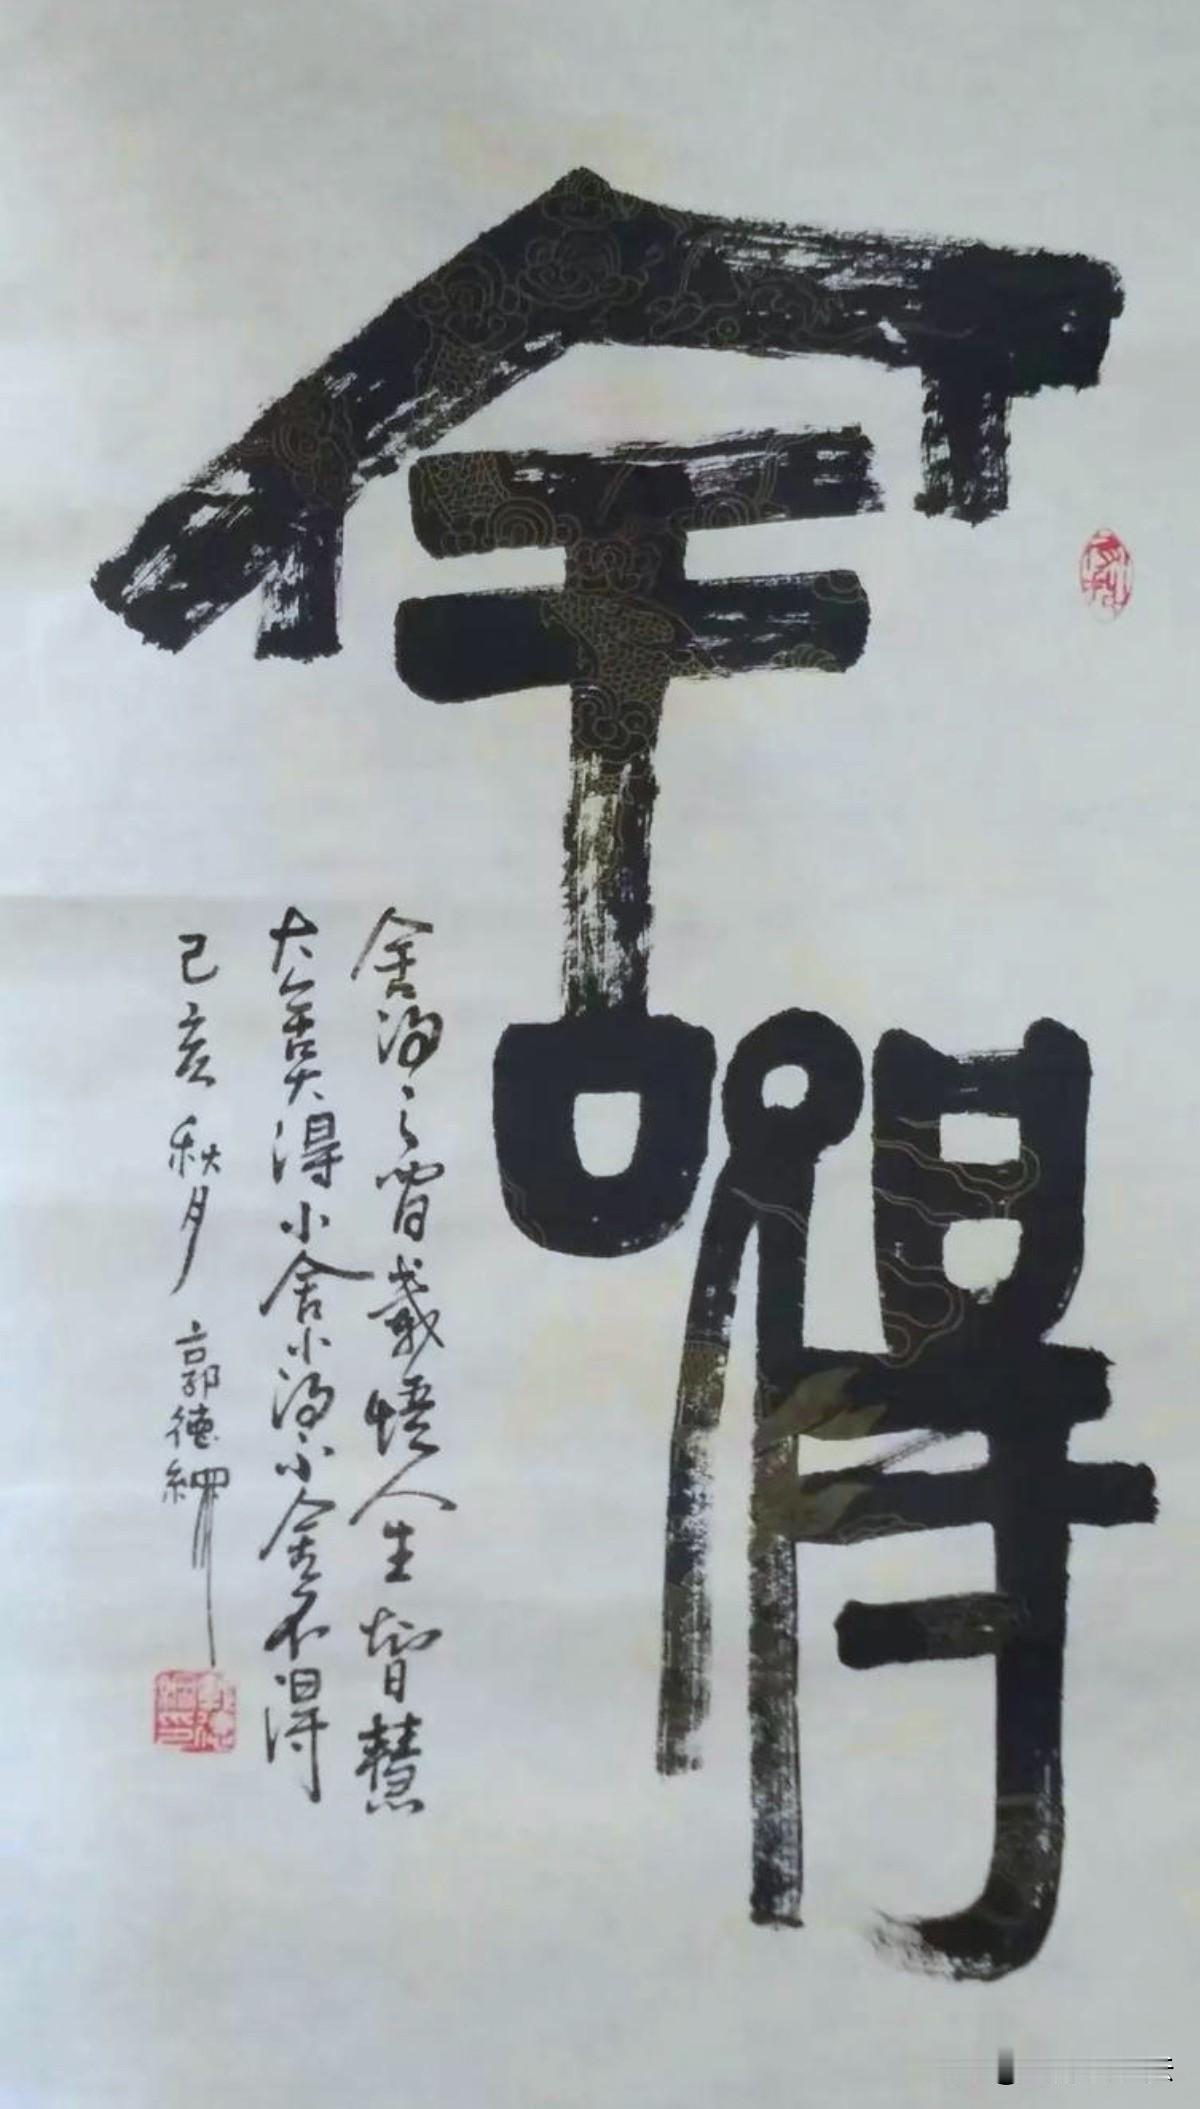 舍得
舍得之間感悟人生智慧
大舍大得小舍小得小舍不得
己亥秋月 郭德綱